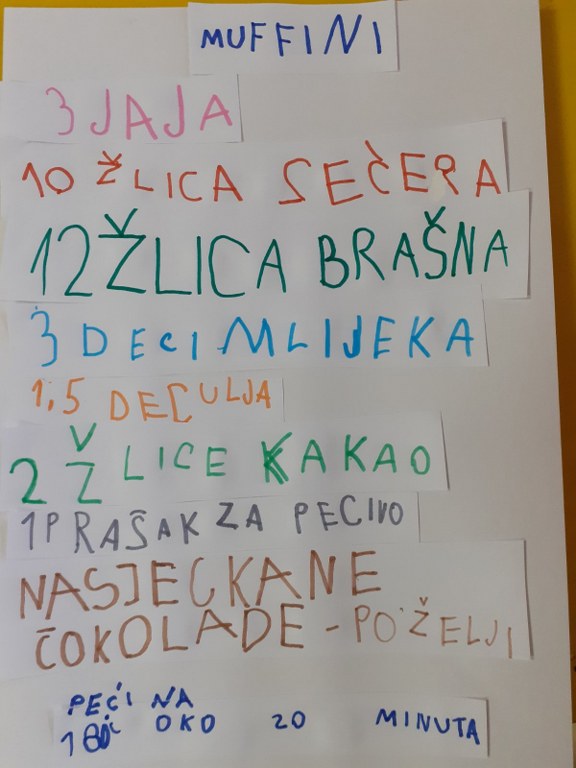 MUFFINI
3 JAJA
10 ŽLICA SEČERA
12 ŽLICA BRAŠNA
3 DECI MLIJEKA
1,5 DEC ULJA
2 ŽLICE KAKAO
1 PRAŠAK ZA PECIVO
NASJECKANE
ČOKOLADE - PO ŽELJI
PEĆI NA
180 OKO 20 MINUTA